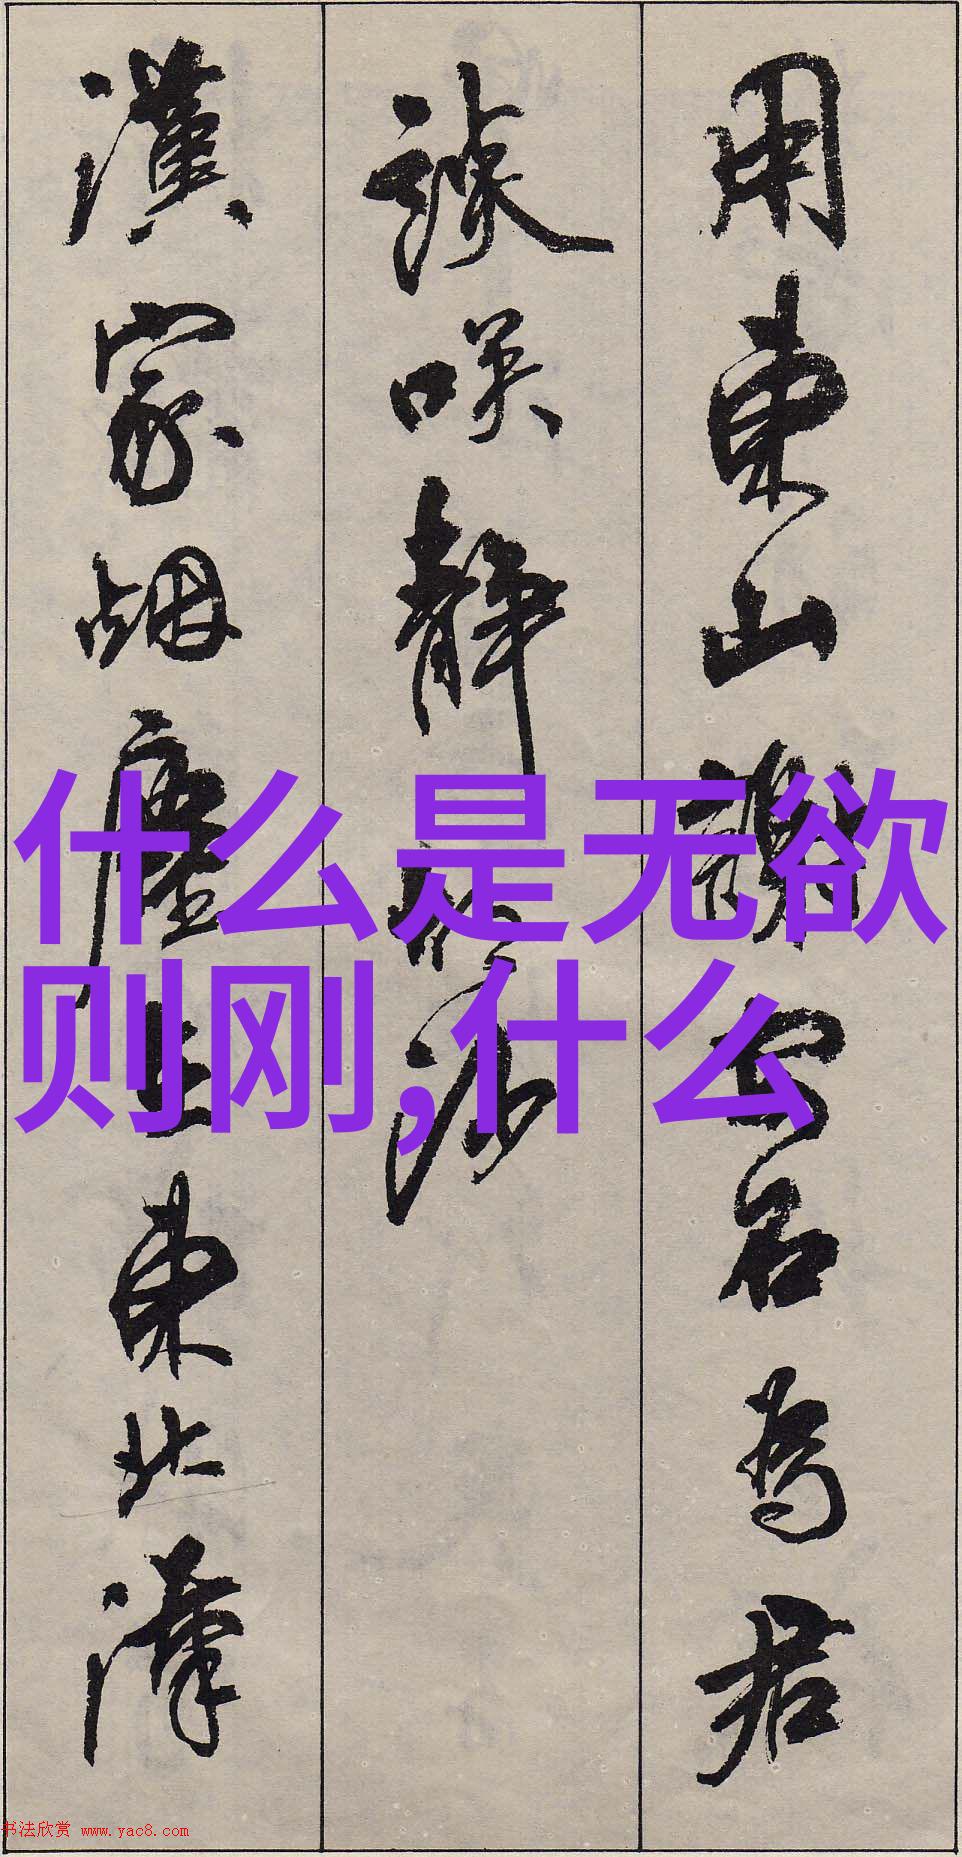 用東山謝安石為君
談咲靜胡沙
漢家烟塵在東北漢
什么是无欲
则刚,什么
书法欣赏 www.yac8.com